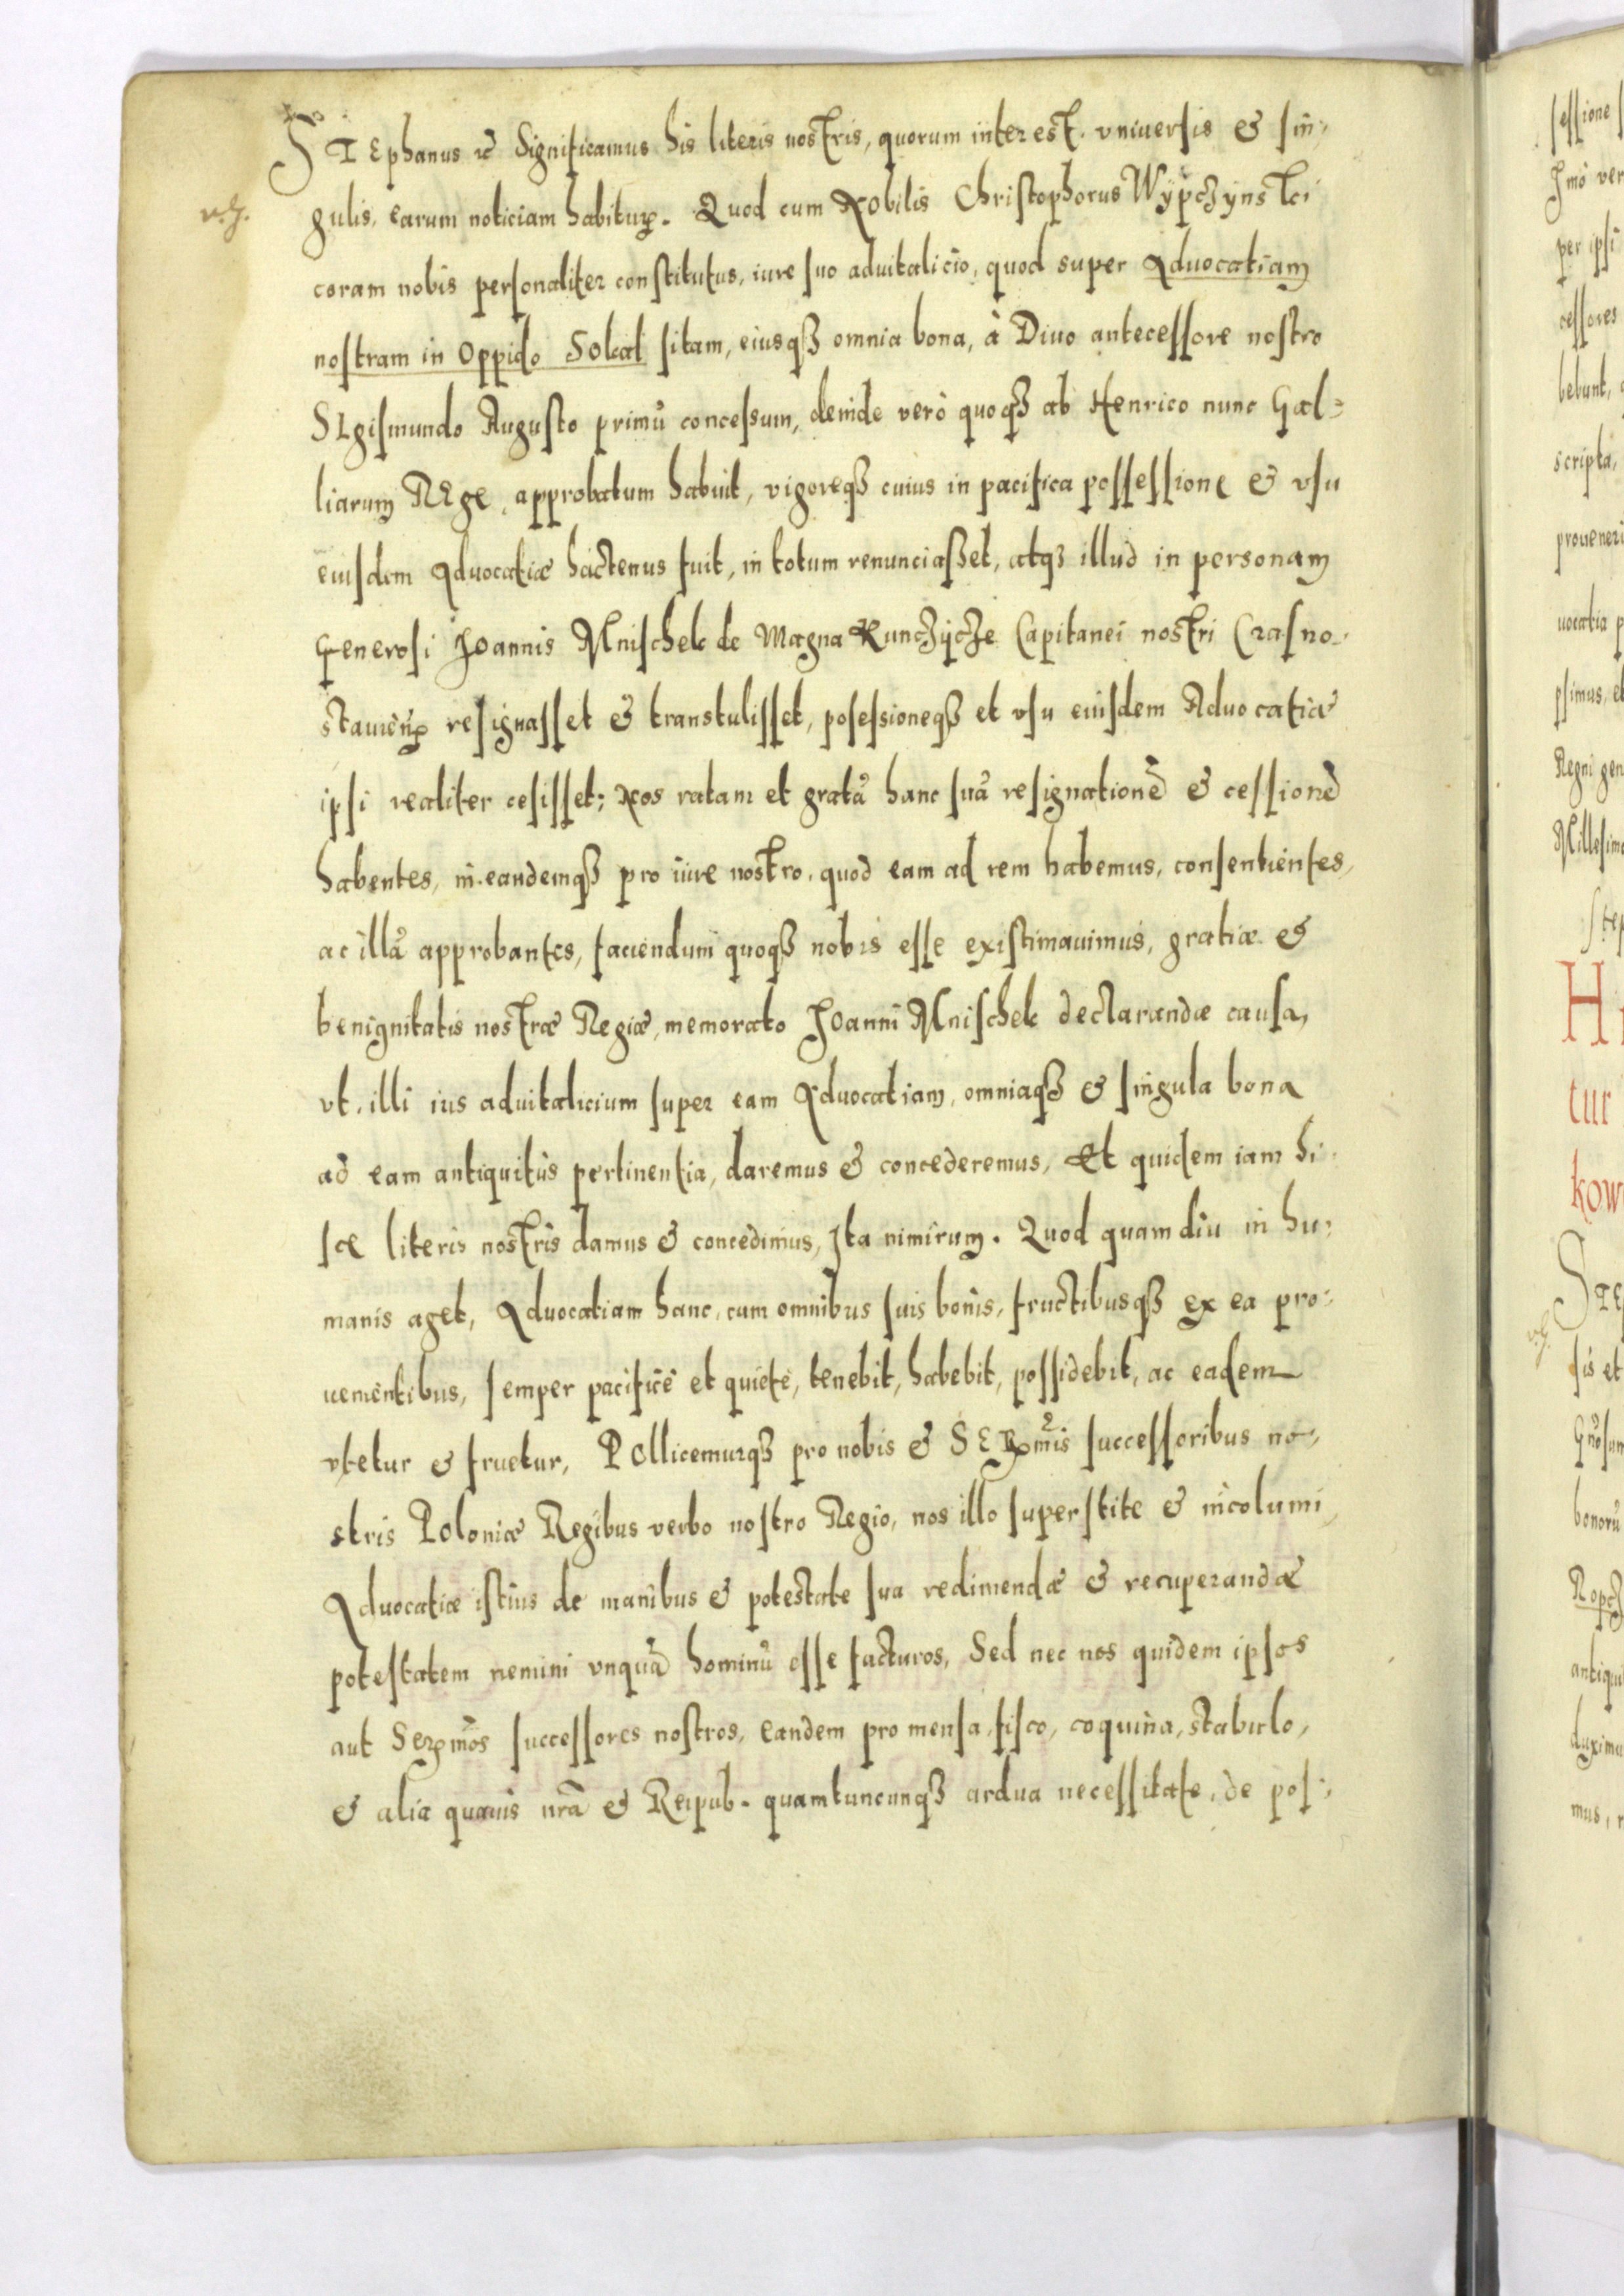 STEphanus etc Significamus his literis nostris, quorum interest. vniuersis & sin-
gulis, earum noticiam habituꝝ. Quod cum Nobilis Christophorus Wypczynski
coram nobis personaliter constitutus, iure suo aduitalicio, quod super Aduocatiam
nostram in Oppido Sokal sitam, eiusqꝫ omnia bona, à Diuo antecessore nostro
SIgismundo Augusto primũ concessum, deinde verò quoqꝫ ab Henrico nunc Gal-
liarum REge, approbatum habuit, vigoreqꝫ cuius in pacifica possessione & vsu
eiusdem Aduocatiæ hactenus fuit, in totum renunciasset, atqꝫ illud in personam
Generosi Joannis Mnischek de Magna Kunczycze Capitanei nostri Crasno-
stauieñ resignasset & transtulisset, posessioneqꝫ et vsu eiusdem Aduocatiæ
ipsi realiter cesisset; Nos ratam et gratã hanc suã resignationẽ & cessionẽ
habentes, in eandemqꝫ pro iure nostro, quod eam ad rem habemus, consentientes,
ac illã approbantes, faciendum quoqꝫ nobis esse existimauimus, gratiæ &
benignitatis nostræ Regiæ, memorato Joanni Mnischek declarandæ causa,
vt. illi ius aduitalicium super eam Aduocatiam, omniaqꝫ & singula bona
ad eam antiquitùs pertinentia, daremus & concederemus, Et quidem iam hi-
sce literis nostris damus & concedimus, Ita nimirum. Quod quam diu in hu-
manis aget, Aduocatiam hanc, cum omnibus suis bonis, fructibusqꝫ ex ea pro-
uenientibus, semper pacificè et quietè, tenebit, habebit, possidebit, ac eadem
vtetur & fruetur, POllicemurqꝫ pro nobis & SERmis successoribus no-
stris Poloniæ Regibus verbo nostro Regio, nos illo superstite & incolumi,
Aduocatiæ istius de manibus & potestate sua redimendæ & recuperandæ
potestatem nemini vnquã hominũ esse facturos, Sed nec nos quidem ipsos
aut Serꝝmos successores nostros, eandem pro mensa, fisco, coquina, stabulo,
& alia quauis nrã & Reipub. quamtuncunqꝫ ardua necessitate, de pos-